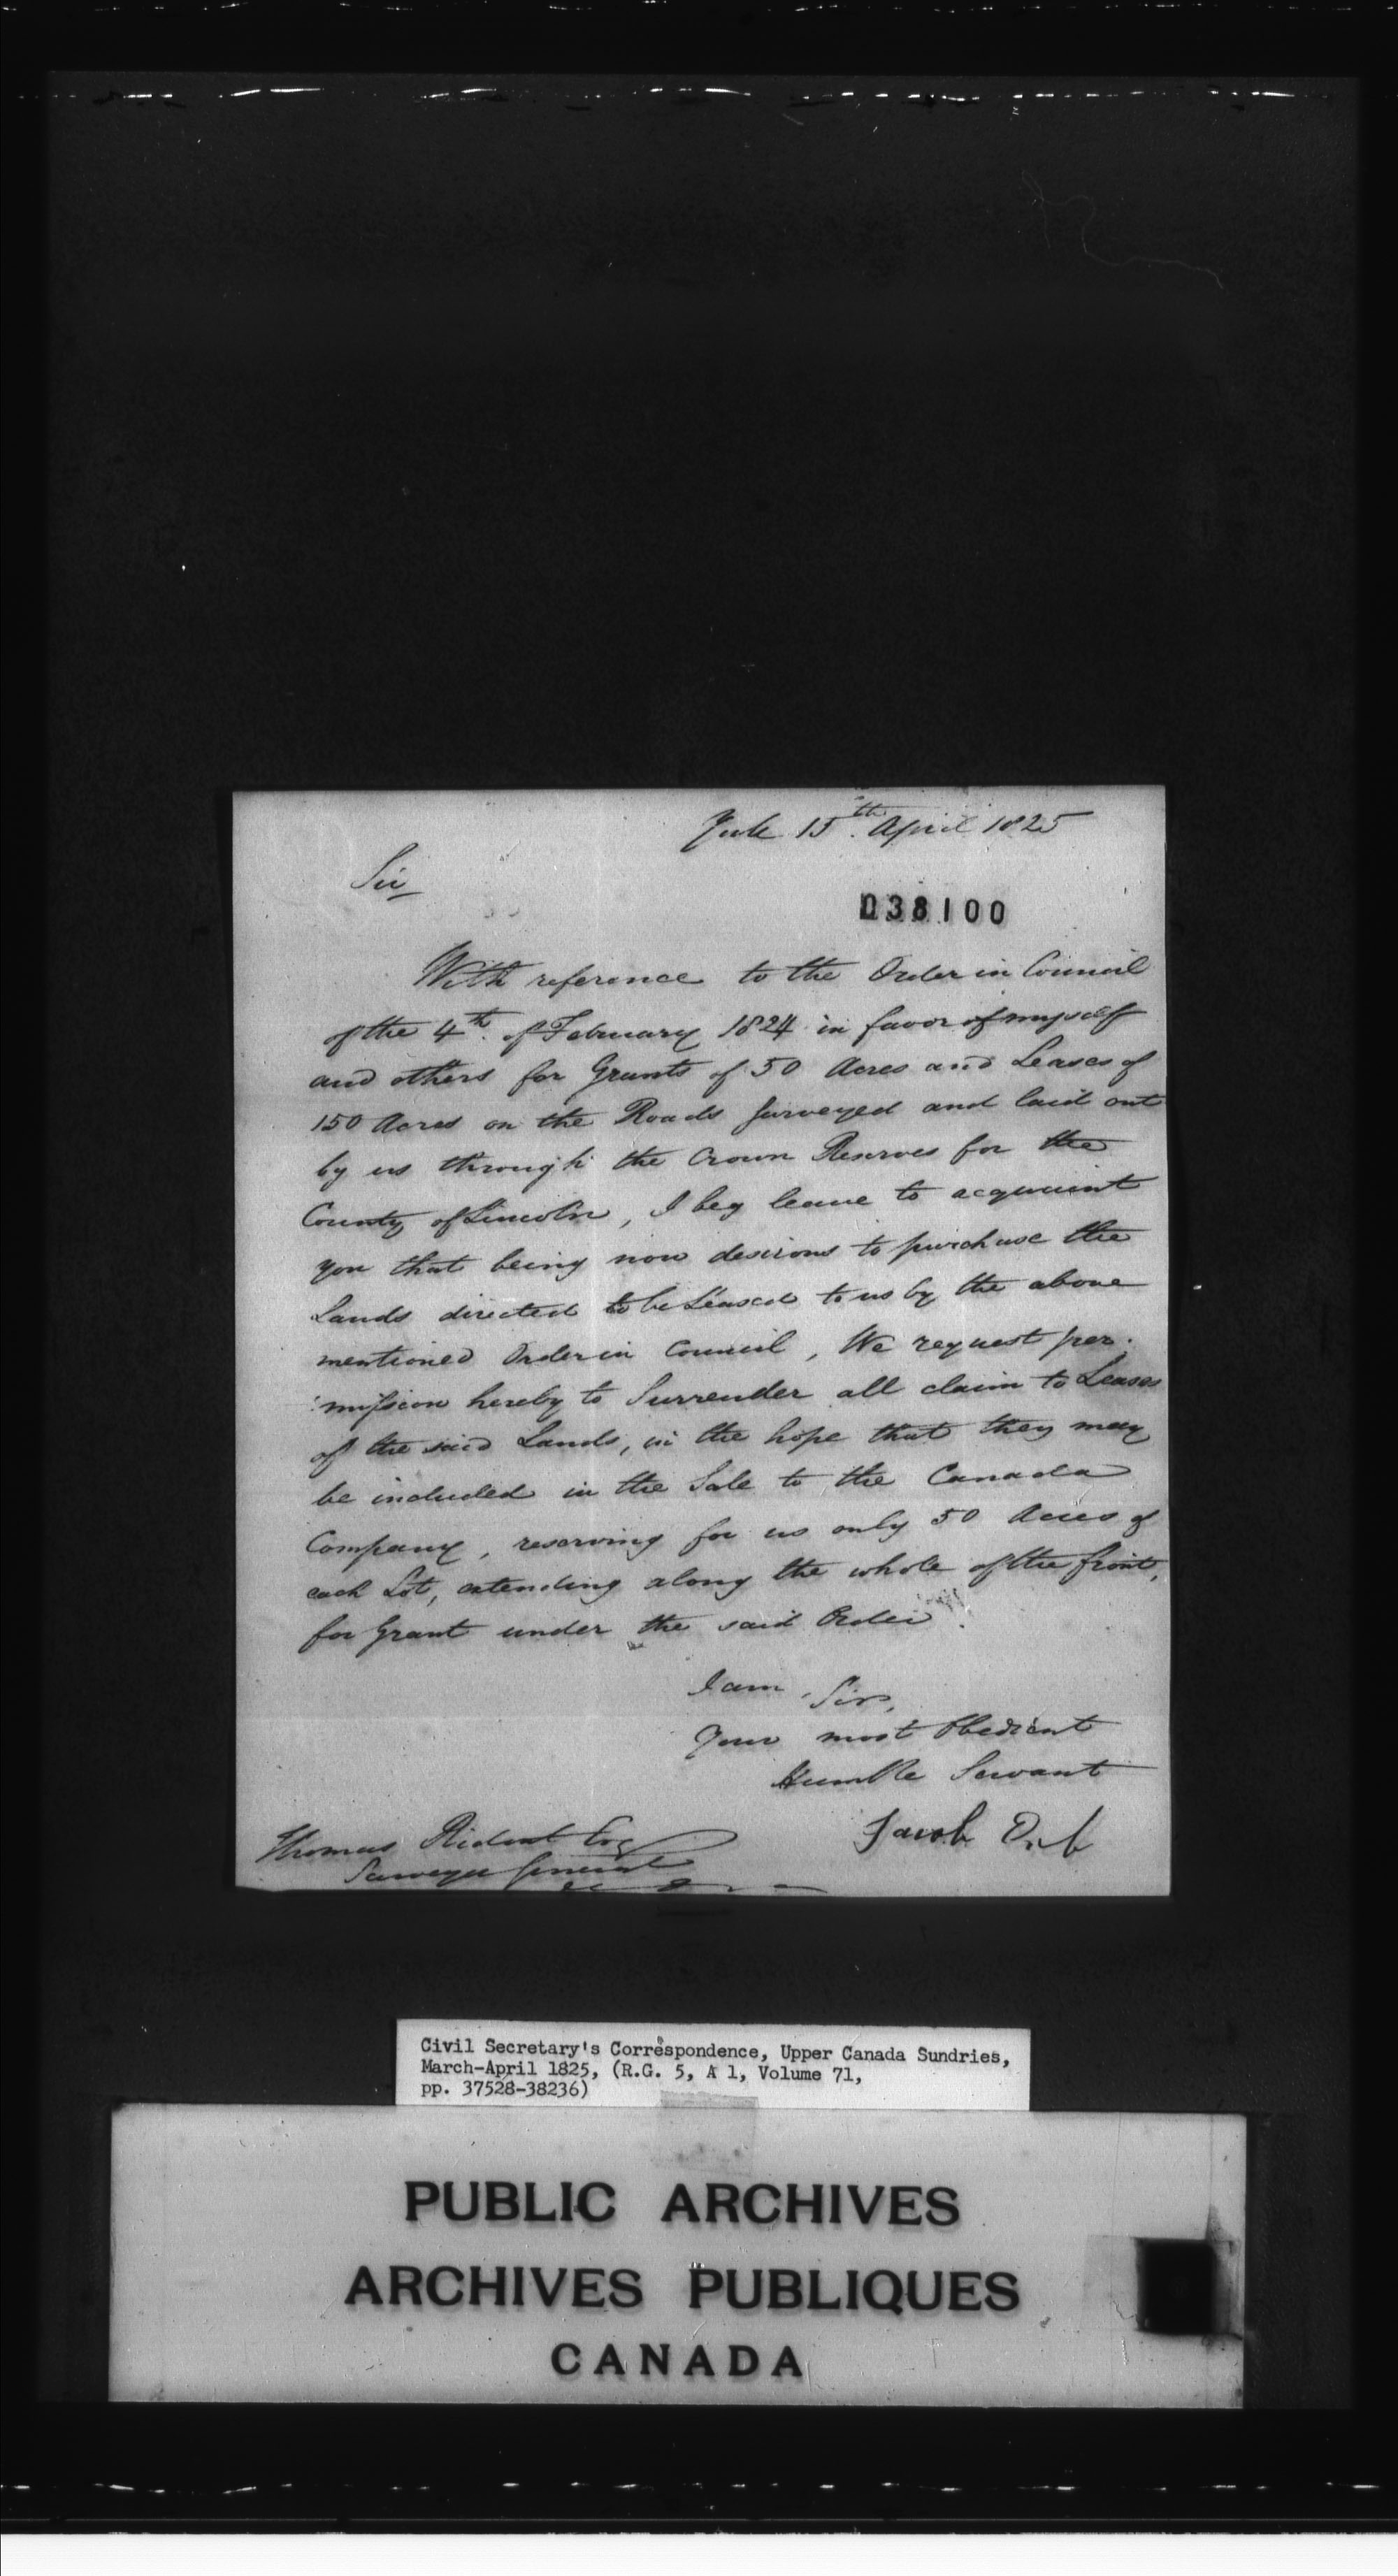 York 15th. April 1825
Sir
038100
With reference to the Order in Council
of the 4th. of February 1824 in favor of myself
and others for Grants of 50 Acres and Leases of
150 Acres on the Roads surveyed and laid out
by us through the Crown Reserves for the
County of Lincoln, I beg leave to acquaint
you that being now desirous to purchase the
Lands directed to be Leased to us by the above
mentioned Order in Council, We request per-
:mission hereby to Surrender all claim to Leases
of the said Lands, in the hope that they may
be included in the Sale to the Canada
Company, reserving for us only 50 Acres of
each Lot, extending along the whole of the front,
for Grant under the said Order.
I am, Sir,
Your most Obedient
Humble Servant
Jacob
Thomas Ridout Esq
Surveyor General
Civil Secretary's Correspondence, Upper Canada Sundries,
March-April 1825, (R.G. 5, A 1, Volume 71,
pp. 37528-38236)
PUBLIC ARCHIVES
ARCHIVES PUBLIQUES
CANADA